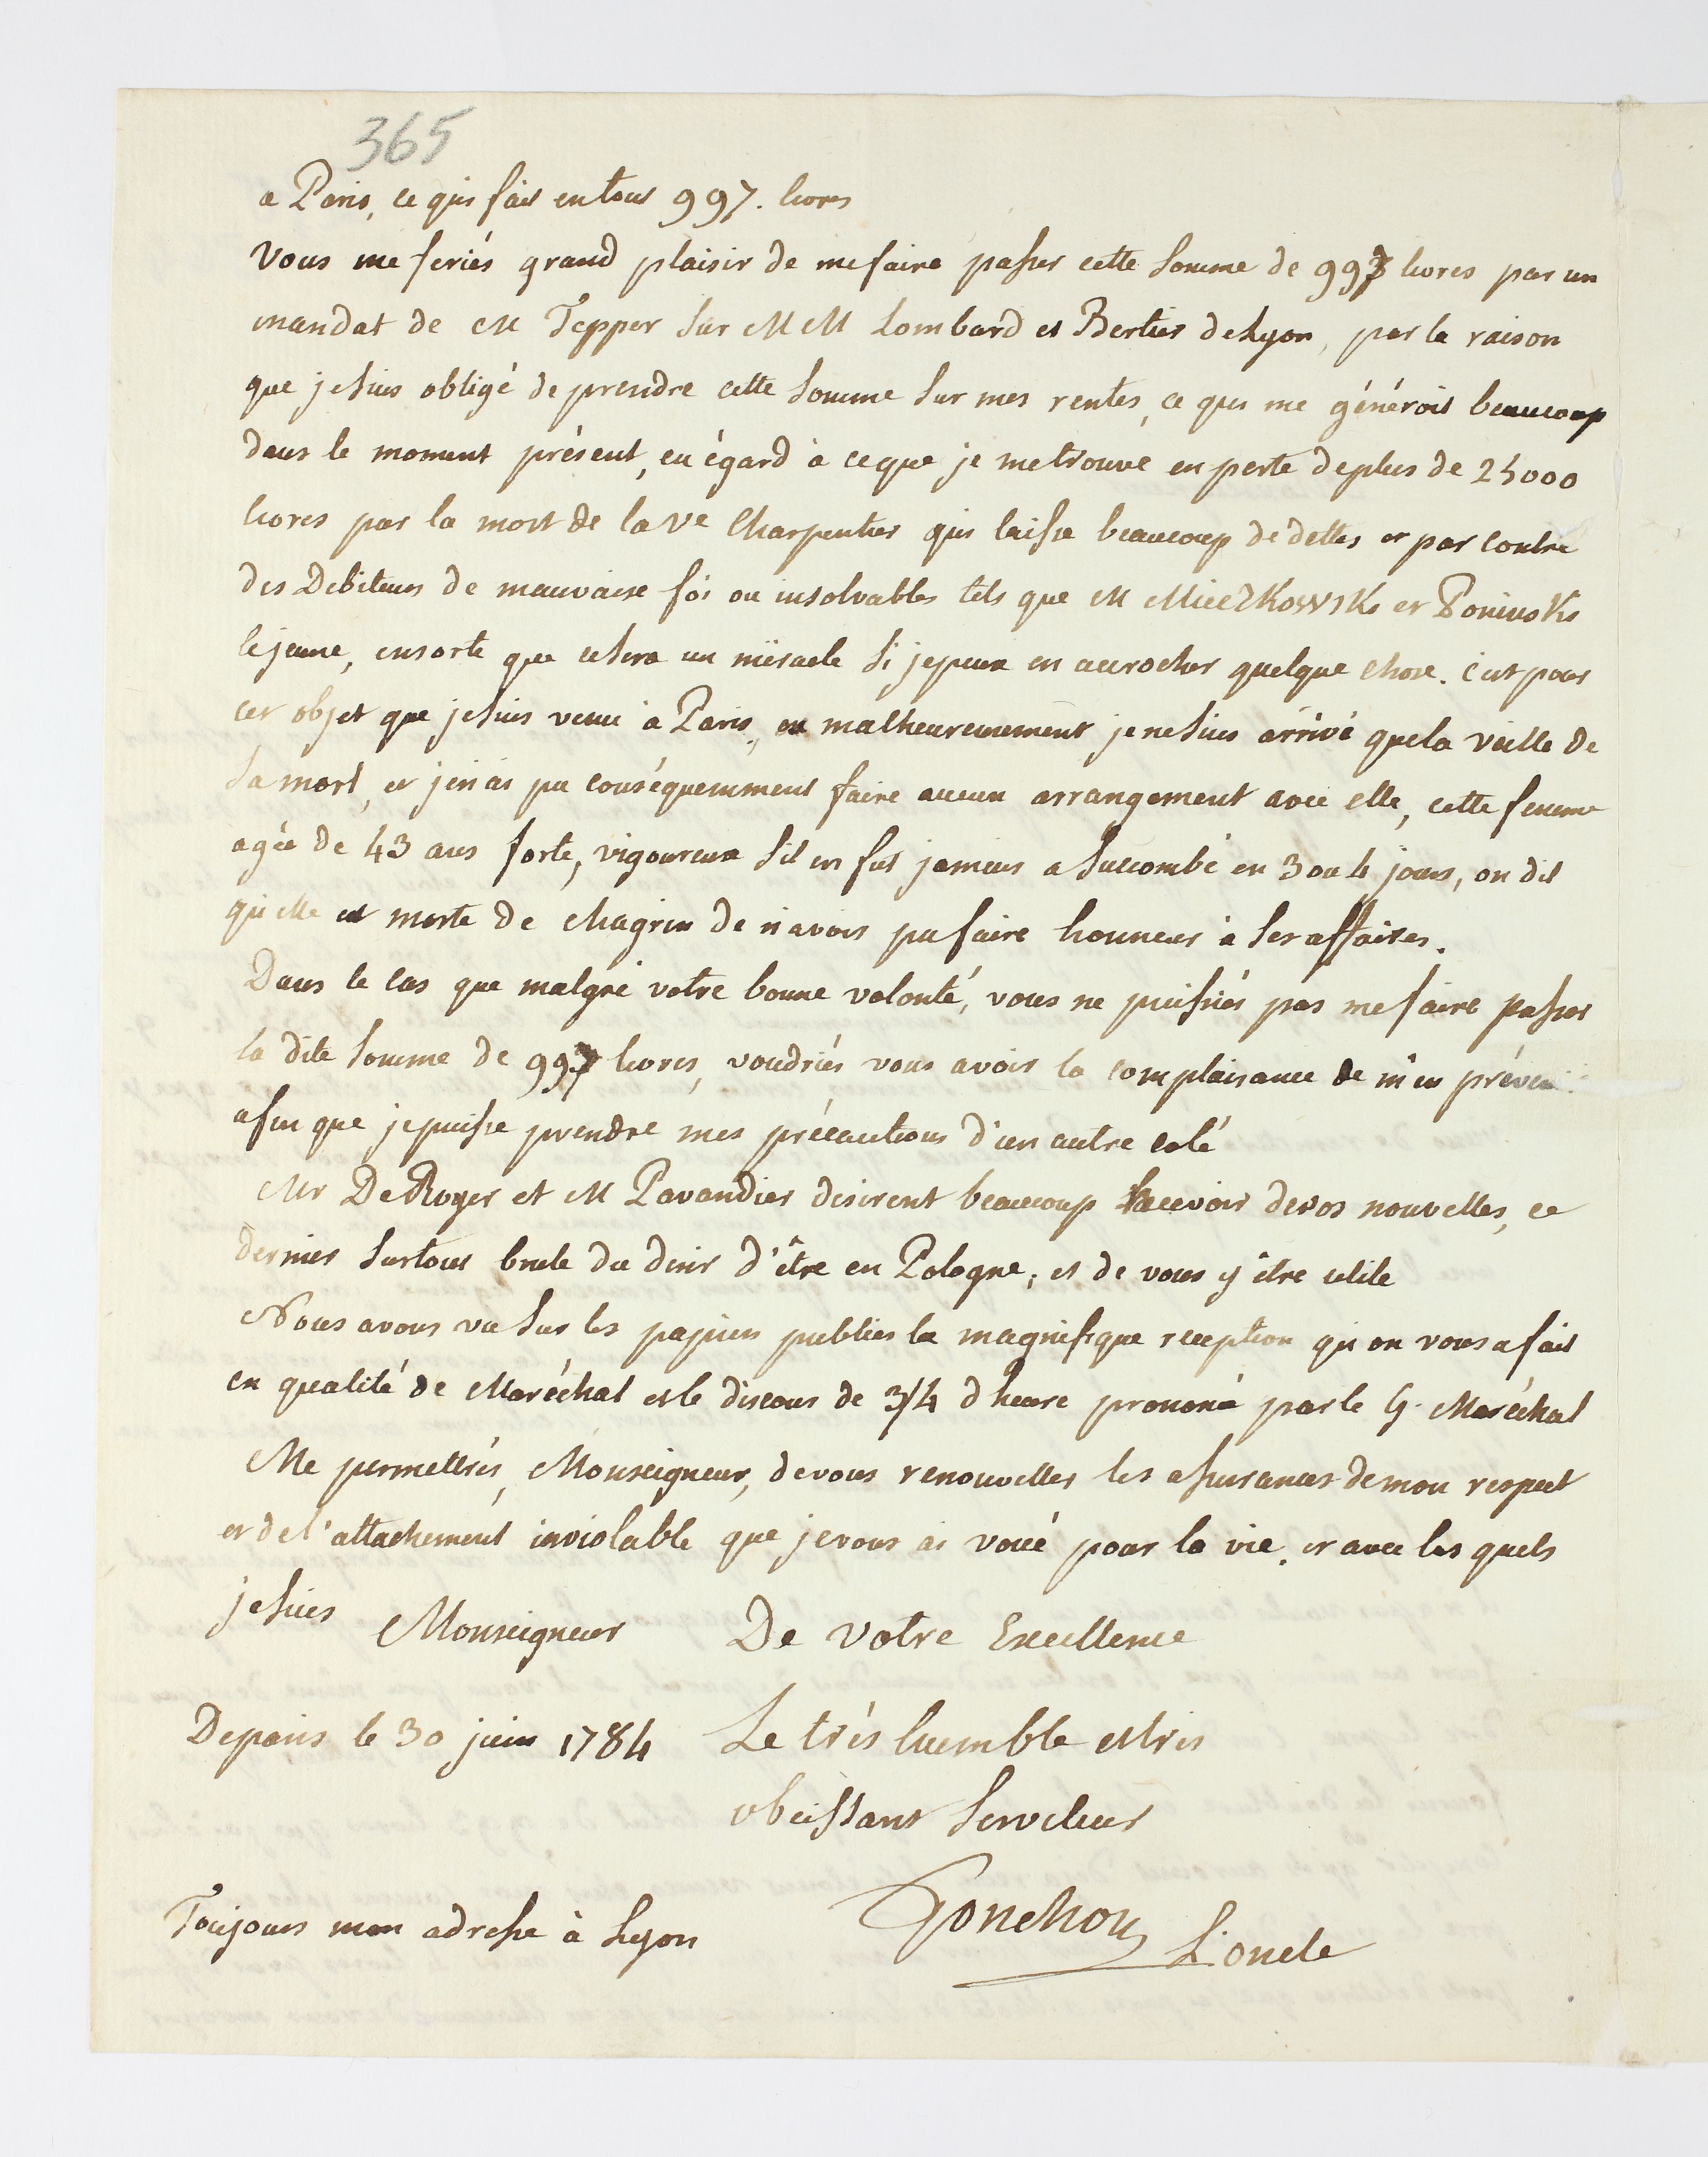 365
a Paris, ce qui fait en tout 997. livres
Vous me feriés grand plaisir de me faire passer cette somme de 997 livres par un
mandat de M Tepper sur MM Lombard et Bertier de Lyon, par la raison
que je suis obligé de prendre cette somme sur mes rentes, ce qui me géneroit beaucoup
dans le moment présent, eu égard à ce que je me trouve en perte de plus de 25000
livres par la mort de la Ve Charpentier qui laisse beaucoup de dettes et par contre
des Debiteurs de mauvaise foi ou insolvables tels que M Mielzkowski et Poninski
le jeune, ensorte que ce sera un miracle si je peux en accrocher quelque chose. c'est pour
cet objet que je suis venu à Paris, malheureusement je ne suis arrivé que la veille de
sa mort, et je n'ai pu conséquemment faire aucun arrangement avec elle, cette femme
agée de 43 ans forte, vigoureuse s'il en fut jamais a succombé en 3 ou 4 jours, on dit
qu'elle est morte de chagrin de n'avoir pu faire honneur à ses affaires.
Dans le cas que malgré votre bonne volonté, vous ne puissiés pas me faire passer
la dite somme de 997 livres, voudriés vous avoir la complaisance de m'en prévenir
afin que je puisse prendre mes précautions d'un autre coté
Mr De Royer et M Pavandier desirent beaucoup recevoir de vos nouvelles, ce
dernier surtout brule du desir d'être en Pologne, et de vous y être utile
Nous avons vu sur les papiers publics la magnifique reception qu'on vous a fait
en qualité de Maréchal et le discours de 3/4 d'heure prononcé par le G. Maréchal
Me permettrés, Monseigneur, de vous renouveller les assurances de mon respect
et de l'attachement inviolable que je vous ai voué pour la vie, et avec les quels
je suis Monseigneur De Votre Excellence
De paris le 30 juin 1784 Le très humble et très
obeissant Serviteur
Toujours mon adresse à Lyon Gonchon L'oncle